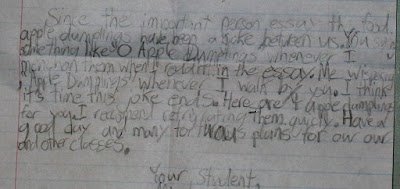 Since the important person essay the food
apple dumplings have been a joke between us. You say
something like "O Apple Dumplings" whenever I
mention them when I read it in the essay. Me whispering
"Apple Dumplings" whenever I walk by you. I think
it's time this joke ends. Here are 4 apple dumplings
for you. I recommend refrigerating them quickly. Have a
good day and many for plans for our our
and other classes.
Your student,